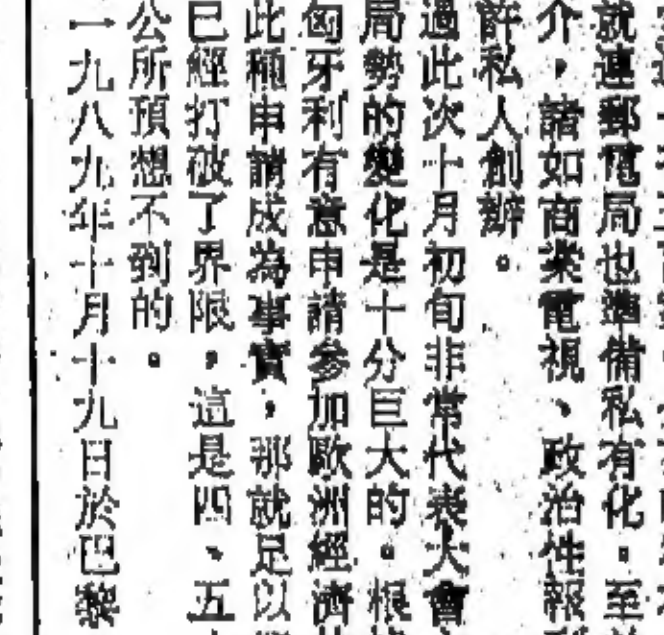 就連郵電局也準備私有化。至
介,諸如商業電視、政治性報
許私人創辦。
過此次十月初旬非常代表大會
局勢的變化是十分巨大的。根
匈牙利有意申請參加歐洲經濟
此種申請成為事實,那就足以
已經打破了界限,這是四、五
公所預想不到的。
一九八九年十月十九日於巴黎